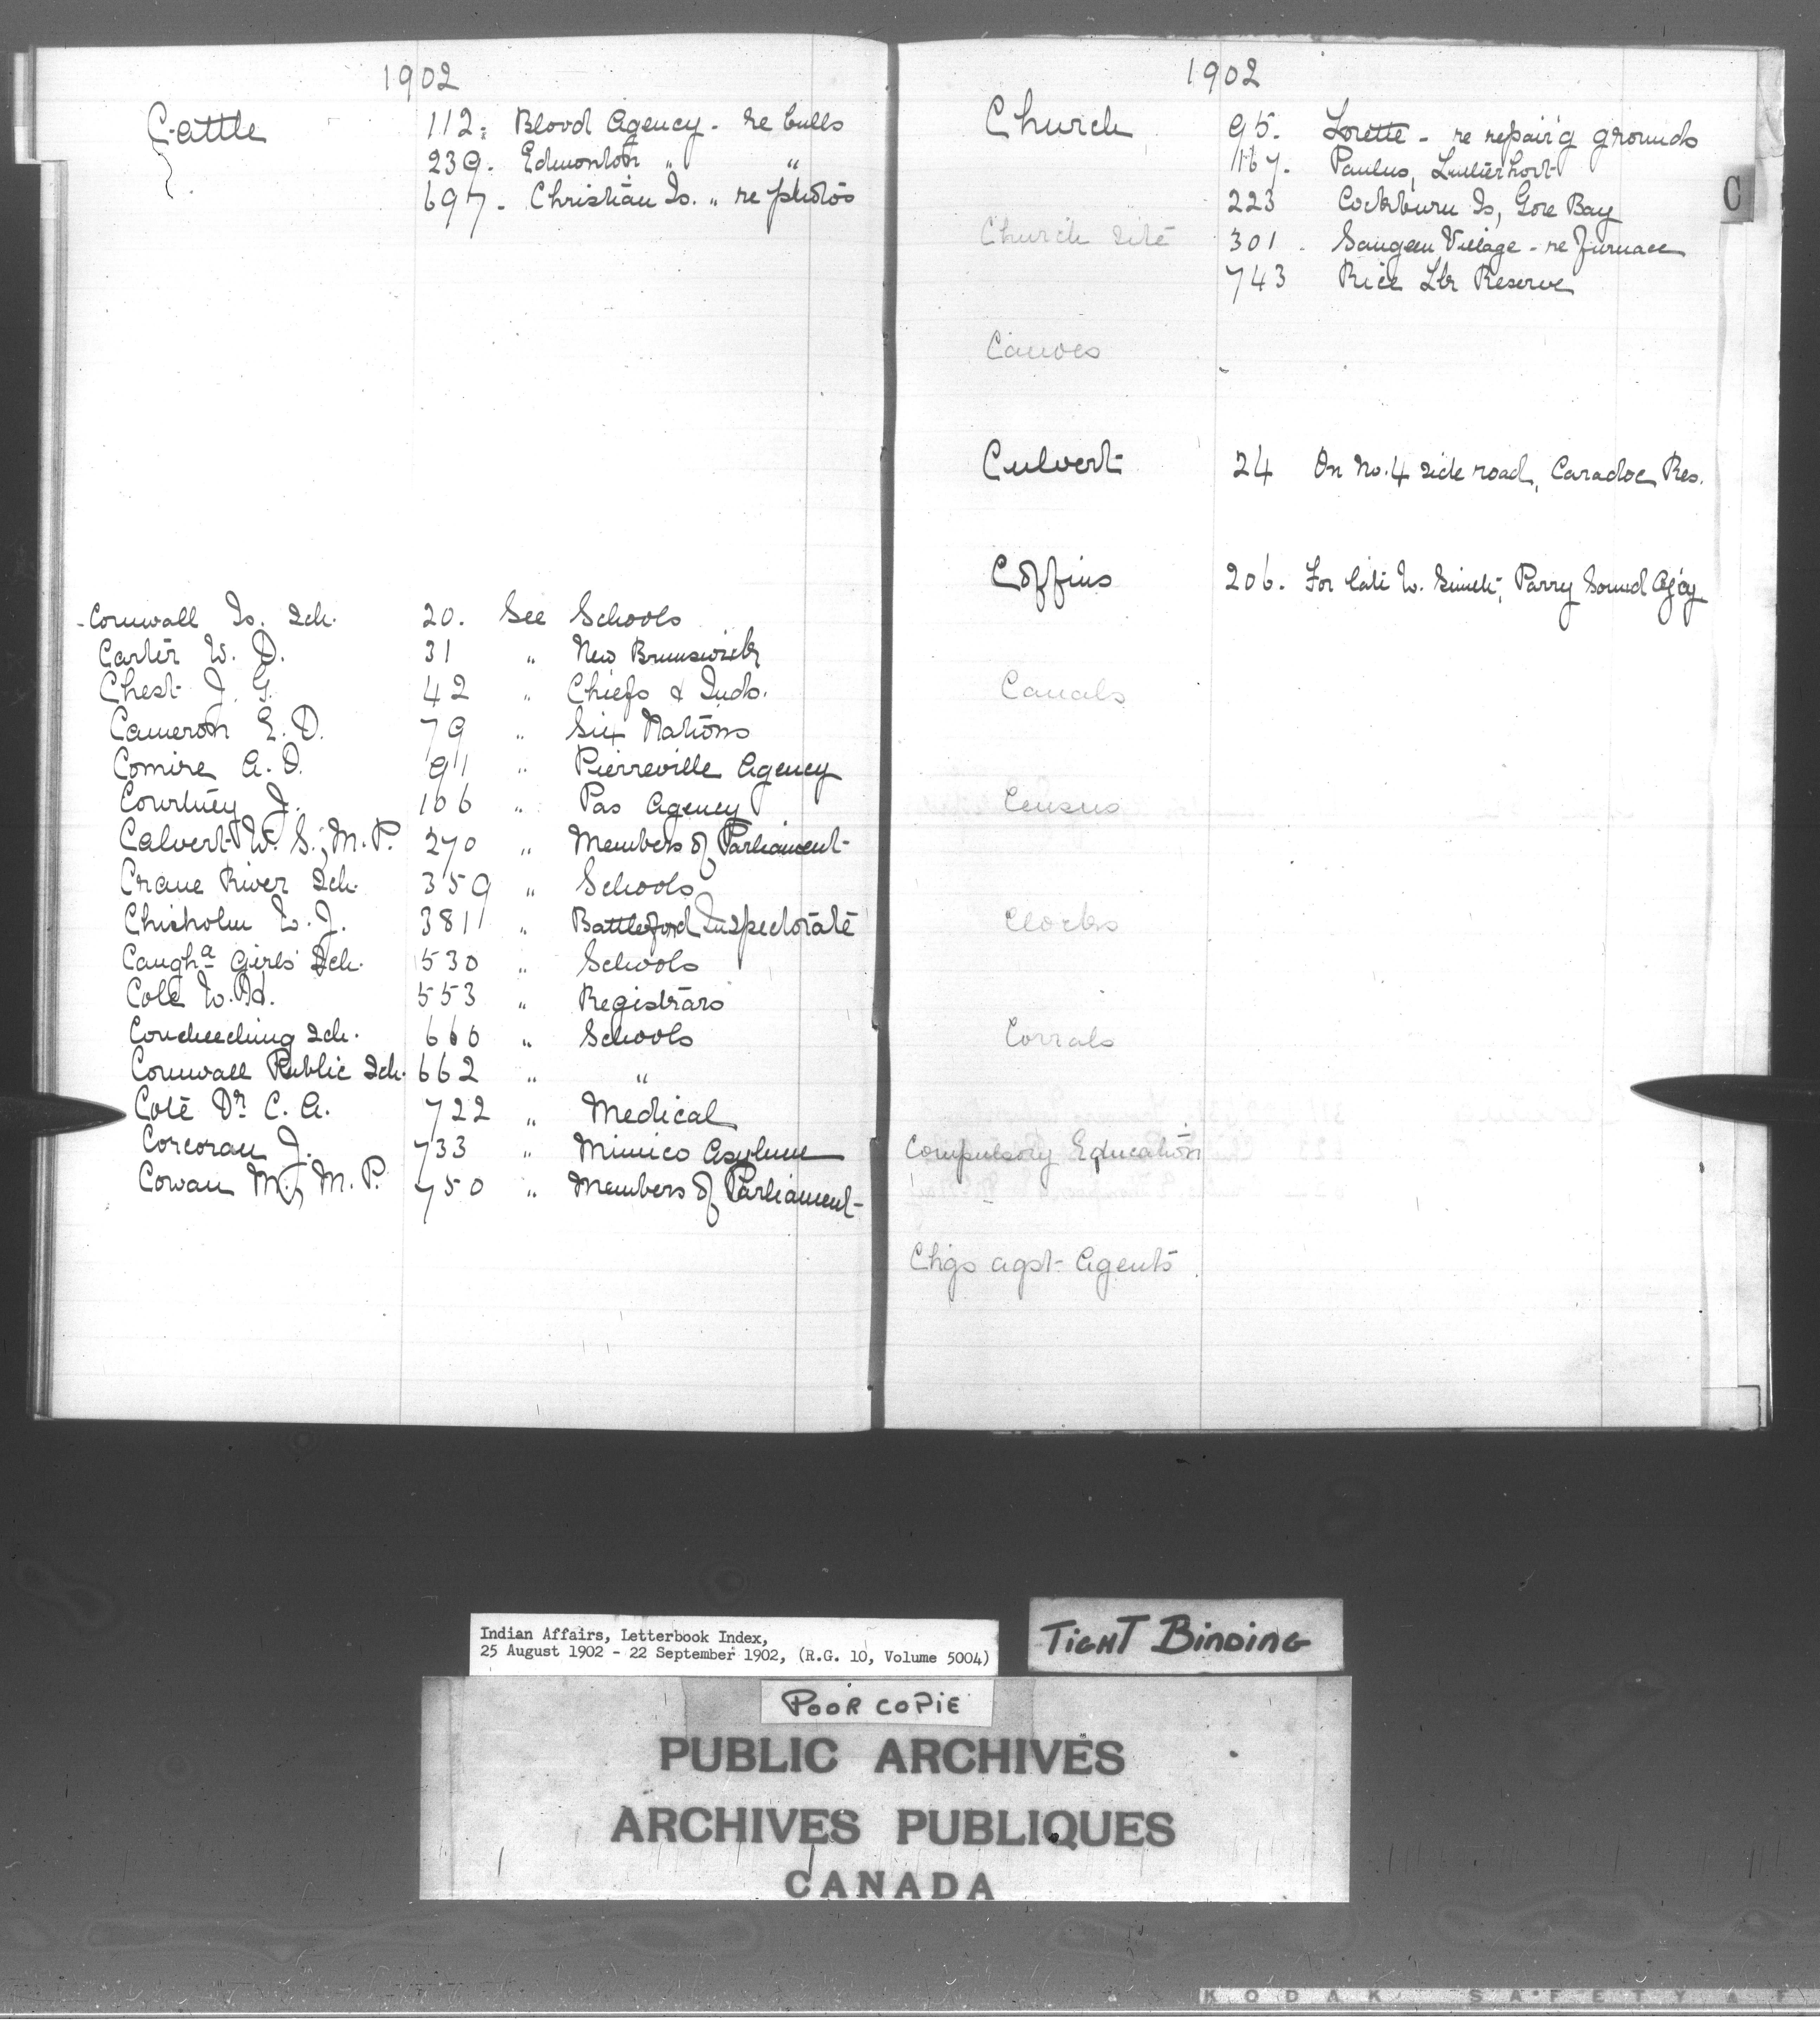 1902
Cattle 112. Blood Agency - re bulls
239. Edmonton " "
697. Christian Is. " re photos
Cornwall Is. Sch. 20. See Schools
Carter W. D. 31 " New Brunswick
Chest J. G. 42 " Chiefs & Inds.
Cameron E. D. 79 " Six Nations
Comire A. O. 91 " Pierreville Agency
Courtney J. 106 " Pas Agency
Calvert W. S., M.P. 270 " Members of Parliament
Crane River Sch. 359 " Schools
Chisholm W. J. 381 " Battleford Inspectorate
Caugha Girls' Sch. 530 " Schools
Cole W. 553 " Registrars
Couchiching Sch. 660 " Schools
Cornwall Public Sch. 662 " "
Coté Dr. C. A. 722 " Medical
Corcoran J. 733 " Mimico Asylum
Cowan M., M.P. 750 " Members of Parliament
1902
Church 95. Lorette - re repair'g grounds
167. Paulus,
223 Cockburn Is, Gore Bay
Church site 301. Saugeen Village - re furnace
743 Rice Lk Reserve
Canoes
Culvert 24 On No. 4 side road, Caradoc Res.
Coffins 206. For late W. Smith, Parry Sound Ag'cy
Canals
Census
Clocks
Corrals
Compulsory Education
Chgs agst Agents
C
Indian Affairs, Letterbook Index,
25 August 1902 - 22 September 1902, (R.G. 10, Volume 5004)
TIGHT BINDING
POOR COPIE
PUBLIC ARCHIVES
ARCHIVES PUBLIQUES
CANADA
KODAK SAFETY